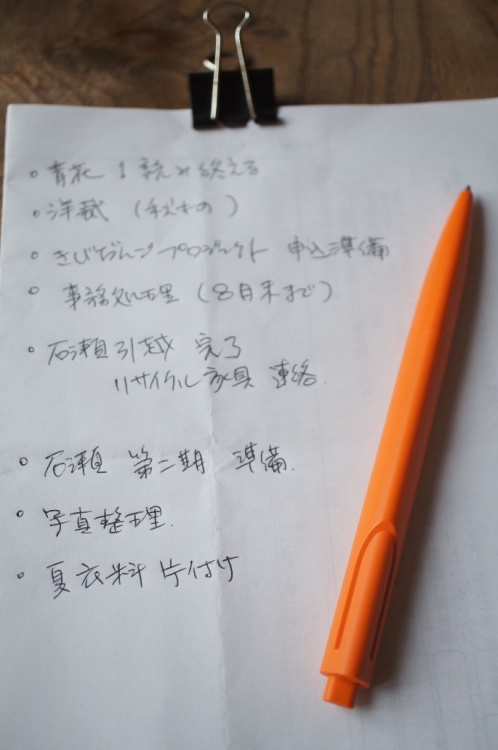 • 青花 1 読み終える
• 洋裁 (秋もの)
• きびだんごプロジェクト 申込準備
• 事務処理 (8月末まで)
• 石瀬引越 完了
リサイクル家具 連絡.
• 石瀬 第二期 準備.
• 写真整理.
• 夏衣料 片付け